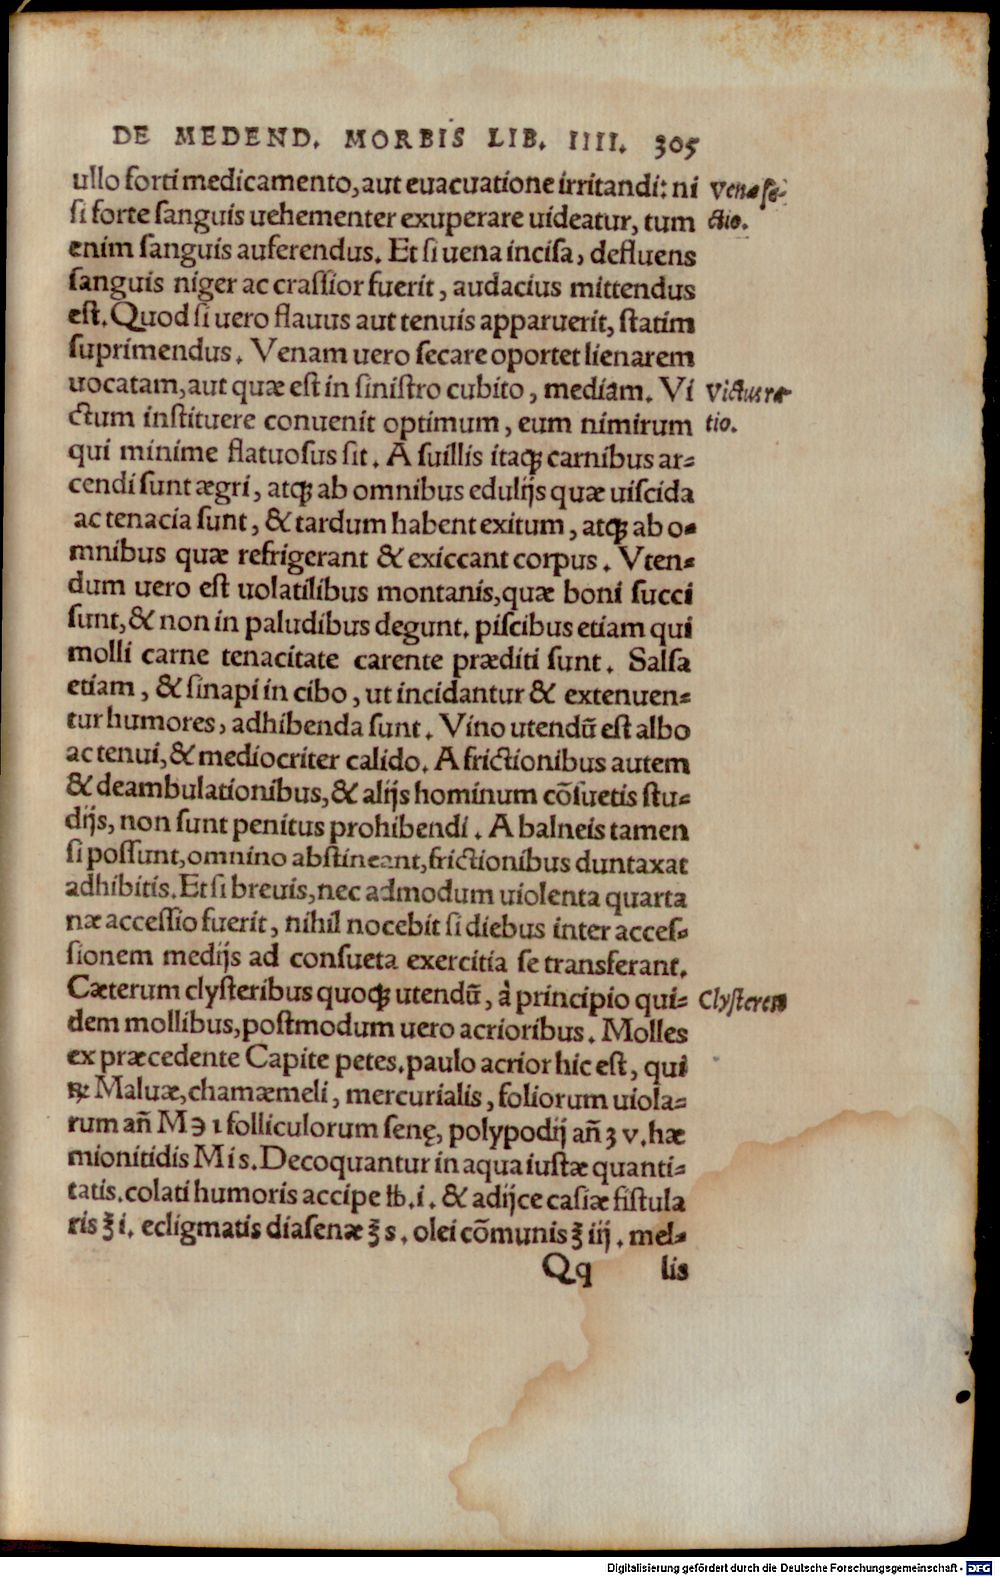 DE MEDEND. MORBIS LIB. IIII. 305
ullo forti medicamento, aut euacuatione irritandi: ni
Venæ se-
si forte sanguis uehementer exuperare uideatur, tum
ctio.
enim sanguis auferendus. Et si uena incisa, defluens
sanguis niger ac crassior fuerit, audacius mittendus
est. Quod si uero flauus aut tenuis apparuerit, statim
suprimendus. Venam uero secare oportet lienarem
uocatam, aut quæ est in sinistro cubito, mediam. Vi
Victus ra-
ctum instituere conuenit optimum, eum nimirum
tio.
qui minime flatuosus sit. A suillis itaq; carnibus ar-
cendi sunt ægri, atq; ab omnibus edulijs quæ uiscida
ac tenacia sunt, & tardum habent exitum, atq; ab o-
mnibus quæ refrigerant & exiccant corpus. Vten-
dum uero est uolatilibus montanis, quæ boni succi
sunt, & non in paludibus degunt. piscibus etiam qui
molli carne tenacitate carente præditi sunt. Salsa
etiam, & sinapi in cibo, ut incidantur & extenuen-
tur humores, adhibenda sunt. Vino utendũ est albo
ac tenui, & mediocriter calido. A frictionibus autem
& deambulationibus, & alijs hominum cõsuetis stu-
dijs, non sunt penitus prohibendi. A balneis tamen
si possunt, omnino abstineant, frictionibus duntaxat
adhibitis. Et si breuis, nec admodum uiolenta quarta
næ accessio fuerit, nihil nocebit si diebus inter acces-
sionem medijs ad consueta exercitia se transferant.
Cæterum clysteribus quoq; utendũ, à principio qui-
Clysteres
dem mollibus, postmodum uero acrioribus. Molles
ex præcedente Capite petes. paulo acrior hic est, qui
℞ Maluæ, chamæmeli, mercurialis, foliorum uiola-
rum añ M ℈ 1 folliculorum senę, polypodij añ ʒ v. hæ
mionitidis M i s. Decoquantur in aqua iustæ quanti-
tatis. colati humoris accipe ℔. i. & adijce casiæ fistula
ris ℥ i. ecligmatis diasenæ ℥ s. olei cõmunis ℥ iij. mel-
Qq lis
Digitalisierung gefördert durch die Deutsche Forschungsgemeinschaft - DFG